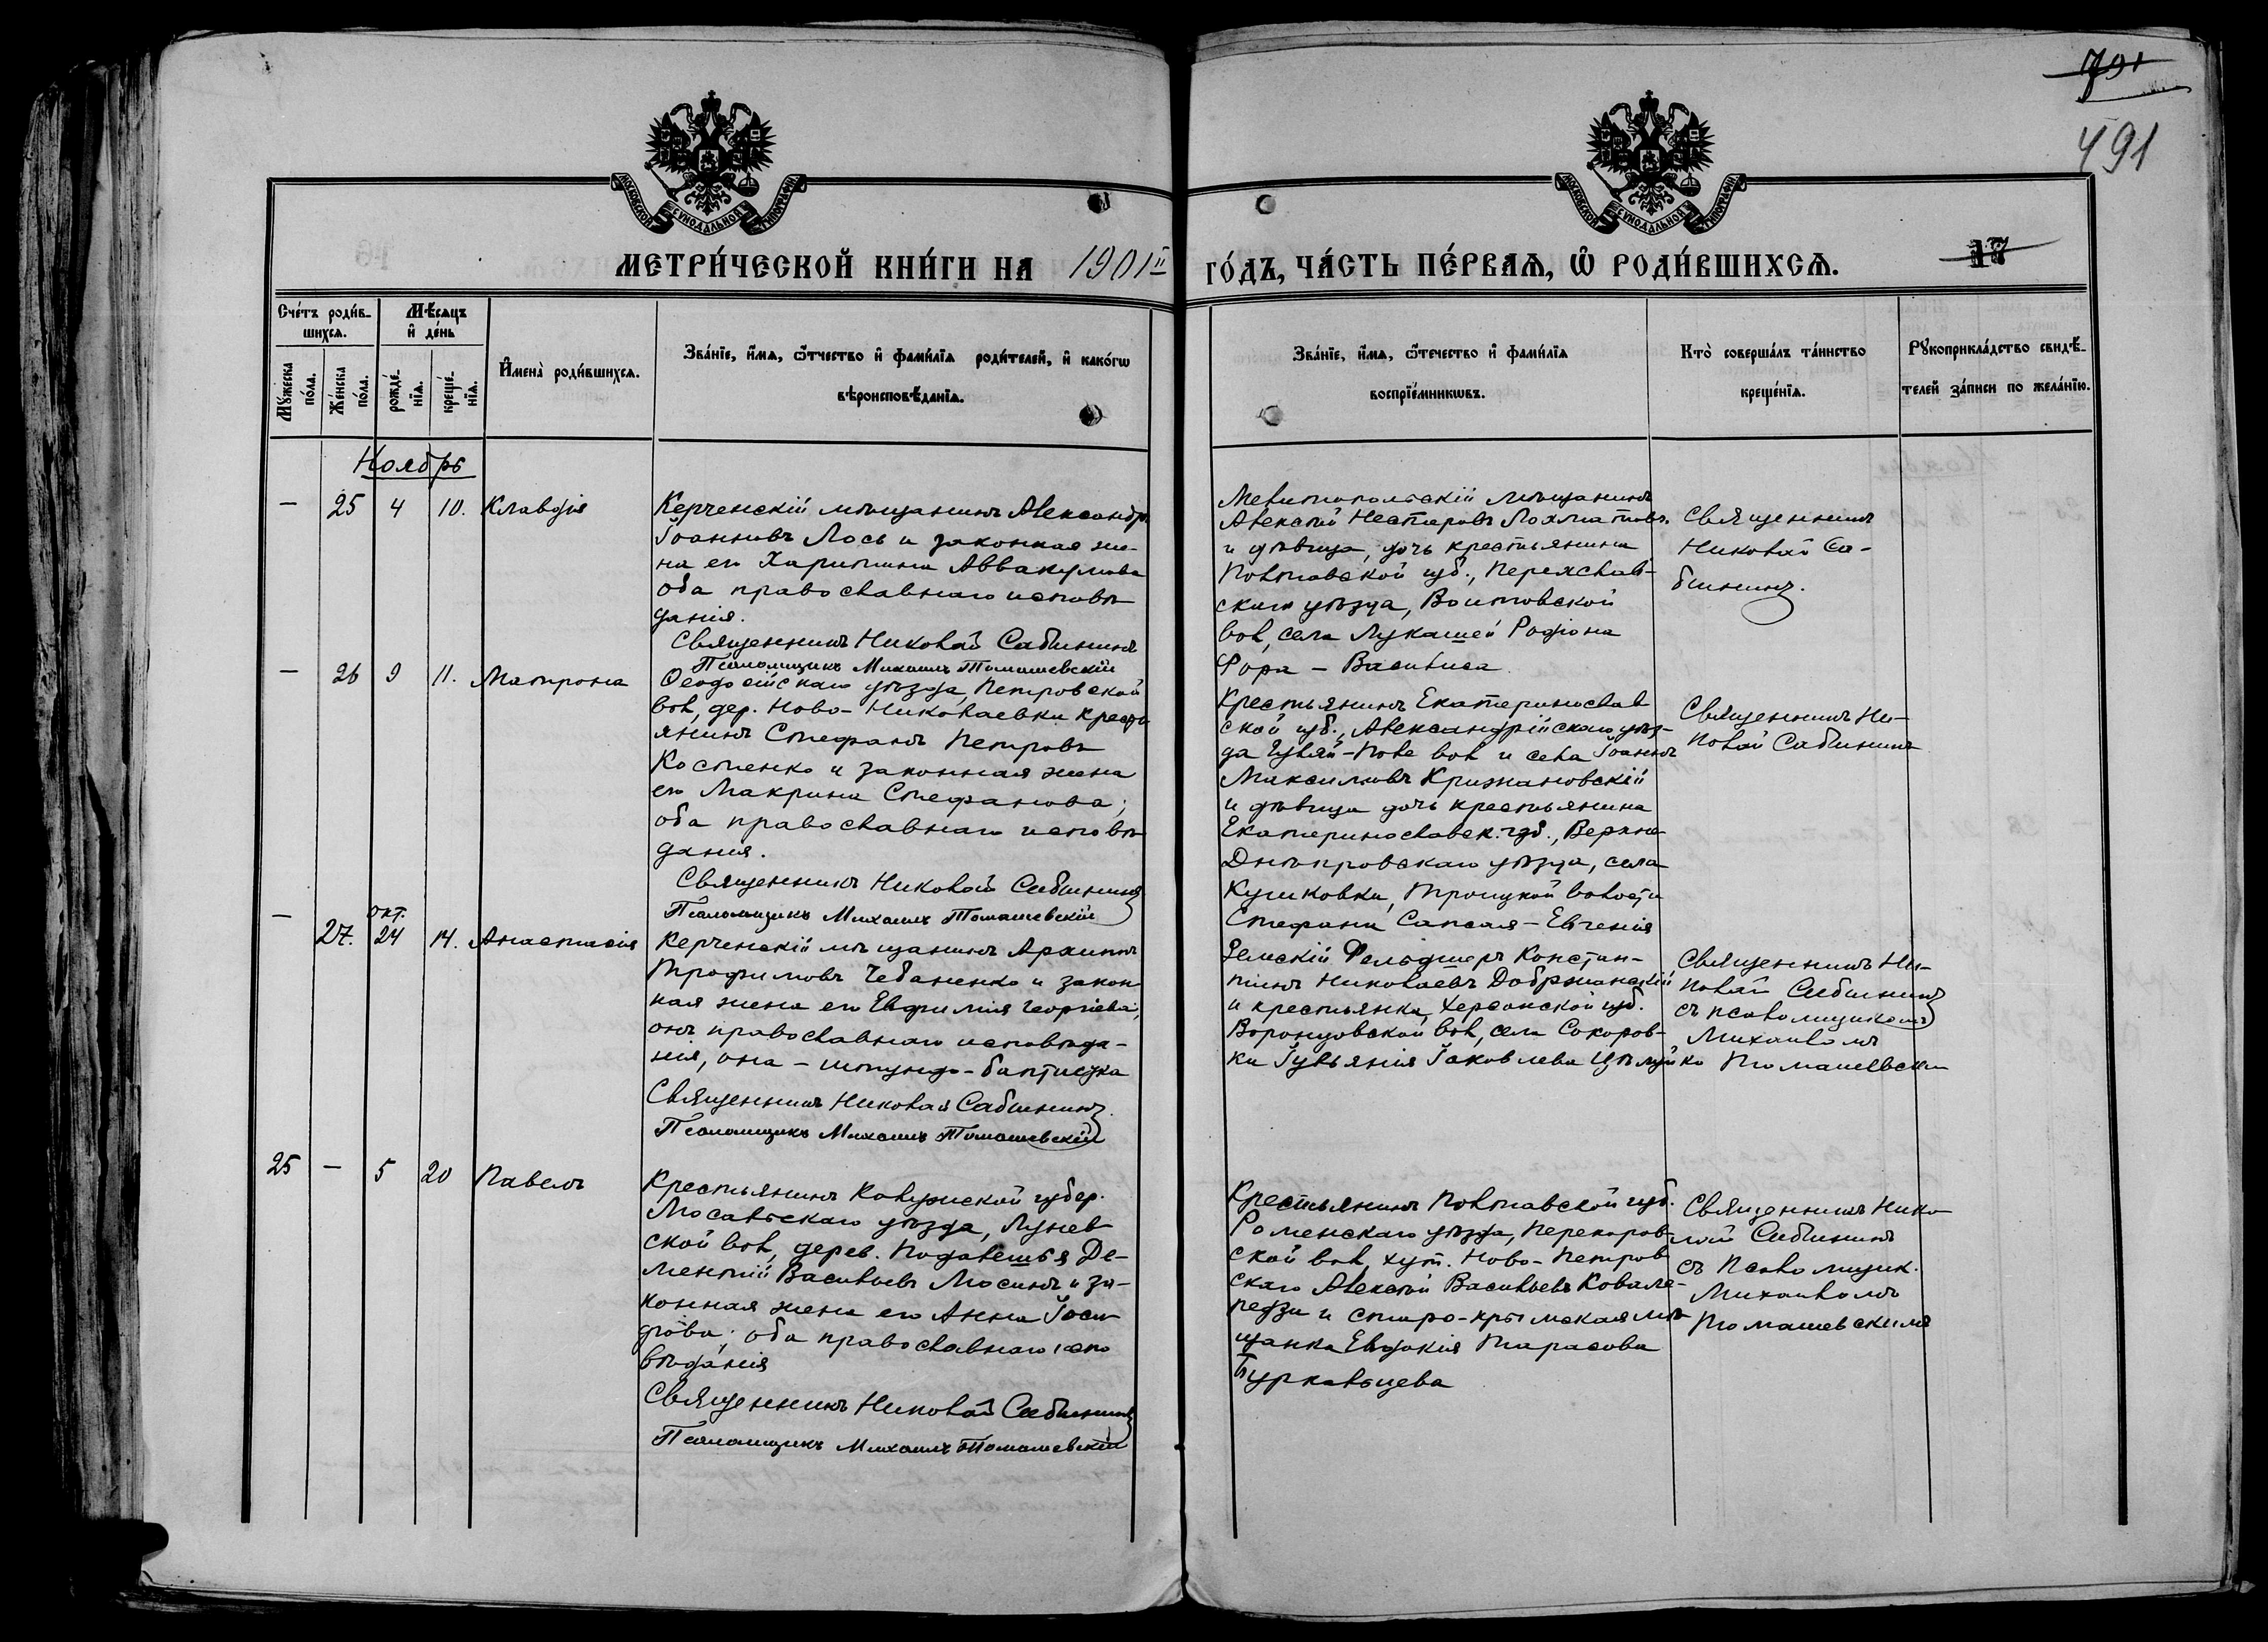 701
491
МОСКОВСКОЙ СѴНОДАЛЬНОЙ ТИПОГРАФІИ
МОСКОВСКОЙ СѴНОДАЛЬНОЙ ТИПОГРАФІИ
МЕТРИ́ЧЕСКОЙ КНИ́ГИ НА 1901й ГО́ДЪ, ЧА́СТЬ ПЕ́РВАѦ, Ѡ РОДИ́ВШИХСѦ.
17
Сче́тъ роди́в-
шихсѧ.
Мѣ́сѧцъ
и҆ де́нь
Мꙋ́жеска
по́ла.
Же́нска
по́ла.
рожде́-
нїѧ.
креще́-
нїѧ.
И҆мена̀ роди́вшихсѧ.
Зва́нїе, и҆́мѧ, ѻ҆́тчество и҆ фами́лїѧ роди́телей, и҆ како́гѡ
вѣроисповѣ́данїѧ.
Зва́нїе, и҆́мѧ, ѻ҆́течество и҆ фами́лїѧ
воспрїе́мникѡвъ.
Кто̀ соверша́лъ та́инство
креще́нїѧ.
Рꙋкоприкла́дство свидѣ́-
телей за́писи по жела́нїю.
Ноябрь
— 25 4 10. Клавдія
Керченскій мѣщанинъ Александръ
Іоанновъ Лось и законная же-
на его Харитина Аввакумова
оба православнаго исповѣ
данія.
Священникъ Николай Сабининъ
Псаломщикъ Михаилъ Томашевскій
Мелитопольскій мѣщанинъ
Алексій Нестеровъ Лохматовъ
и дѣвица, дочь крестьянина
Полтавской губ., Переяслав-
скаго уѣзда, Воитовской
вол, села Лукашей Родіона
Фора — Василиса
Священникъ
Николай Са-
бининъ.
— 26 9 11. Матрона
Ѳеодосійскаго уѣзда, Петровской
вол, дер. Ново-Николаевки кресть
янинъ Стефанъ Петровъ
Костенко и законная жена
его Макрина Стефанова;
оба православнаго исповѣ
данія.
Священникъ Николай Сабининъ
Псаломщикъ Михаилъ Томашевскій
Крестьянинъ Екатеринослав
ской губ., Александрійскаго уѣз-
да Гуляй-Поле вол и села Іоаннъ
Максимовъ Крижановскій
и дѣвица дочь крестьянина
Екатеринославск. губ., Верхне-
Днѣпровскаго уѣзда, села
Куликовки, Троицкой волости
Стефана Сапсая — Евгенія
Священникъ Ни-
колай Сабининъ
— 27. окт. 24 14. Анастасія
Керченскій мѣщанинъ Архипъ
Трофимовъ Чебаненко и закон
ная жена его Евфимія Георгіева;
онъ православнаго исповѣда-
нія, она — штундо-баптистка
Священникъ Николай Сабининъ.
Псаломщикъ Михаилъ Томашевскій
Земскій Фельдшеръ Констан-
тинъ Николаевъ Добржанскій
и крестьянка, Херсонской губ.
Воронцовской вол, села Сокоров-
ки Іуліанія Іаковлева
Священникъ Ни-
колай Сабининъ
съ псаломщикомъ
Михаиломъ
Томашевским
25 — 5 20 Павелъ
Крестьянинъ Калужской губер.
Мосальскаго уѣзда, Лунев
ской вол, дерев. Подалешья Де-
ментій Васильевъ Мосинъ и за-
конная жена его Анна Іоси
фова; оба православнаго испо
вѣданія
Священникъ Николай Сабининъ
Псаломщикъ Михаилъ Томашевскій
Крестьянинъ Полтавской губ.
Роменскаго уѣзда, Перекопов-
ской вол, хут. Ново-Петров
скаго Алексій Васильевъ Ковале-
и старо-крымская мѣ-
щанка Евдокія Тарасова
Буркавцева
Священникъ Нико
лай Сабининъ
съ Псаломщик.
Михаиломъ
Томашевскимъ